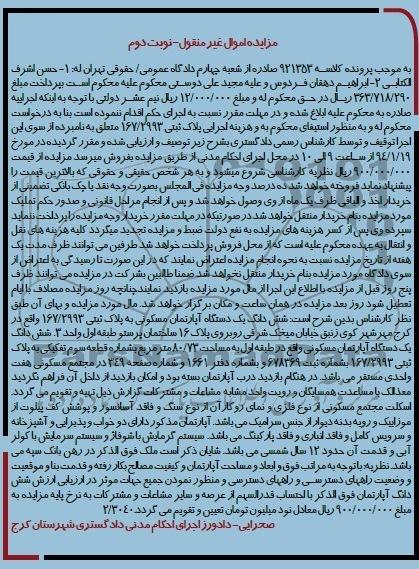 مزایده اموال غیر منقول-نوبت دوم
به موجب پرونده کلاسه ۹۲۱۳۵۳ صادره از شعبه چهارم دادگاه عمومی/ حقوقی تهران له: ۱- حسن اشرف
الکتابی ۲-ابراهیم دهقان فردوس و علیه مجید علی دوستی محکوم علیه محکوم است بپرداخت مبلغ
۳۶۳/۷۱۸/۲۹۰ ریال در حق محکوم له و مبلغ ۱۲/۰۰۰/۰۰۰ ریال نیم عشر دولتی با توجه به اینکه اجراییه
صادره به محکوم علیه ابلاغ شده و در مهلت مقرر نسبت به اجرای حکم اقدام ننموده است بنا به درخواست
محکوم له و به منظور استیفای محکوم به و هزینه اجرایی پلاک ثبتی ۱۶۷/۲۹۹۳ متعلق به نامبرده از سوی این
اجرا توقیف و توسط کارشناس رسمی دادگستری بشرح زیر توصیف و ارزیابی شده و مقرر گردیده در مورخ
۹۴/۱/۱۹ از ساعت ۹ الی ۱۰ در محل اجرای احکام مدنی از طریق مزایده بفروش میرسد مزایده از قیمت
۹۰۰/۰۰۰/۰۰۰ ریال نظریه کارشناسی شروع میشود و به هر شخص حقیقی و حقوقی که بالاترین قیمت را
پیشنهاد نماید فروخته خواهد شد ده درصد وجه مزایده فی المجلس بصورت وجه نقد یا چک بانکی تضمینی از
خریدار اخذ و الباقی ظرف یک ماه از وی وصول خواهد شد و پس از انجام مراحل قانونی و صدور حکم تملیک
مورد مزایده بنام خریدار منتقل خواهد شد در صورتیکه در مهلت مقرر خریدار وجه مزایده را پرداخت ننماید
سپرده وی پس از کسر هزینه های مزایده به نفع دولت ضبط و مزایده تجدید میگردد کلیه هزینه های نقل
و انتقال به عهده محکوم علیه است که از محل فروش پرداخت خواهد شد طرفین می توانند ظرف مدت یک
هفته از تاریخ مزایده نسبت به نحوه انجام مزایده اعتراض نمایند که در این صورت تا رسیدگی به اعتراض از
سوی دادگاه مورد مزایده بنام خریدار منتقل نخواهد شد ضمنا طالبین بشرکت در مزایده می توانند ظرف
پنج روز قبل از مزایده با اطلاع این اجرا از مال مورد مزایده بازدید نمایند چنانچه روز مزایده مصادف با ایام
تعطیل شود روز بعد مزایده در همان ساعت و مکان برگزار خواهد شد. مال مورد مزایده و بهای آن طبق
نظر کارشناس بدین شرح است: شش دانگ یک دستگاه آپارتمان مسکونی به پلاک ثبتی ۱۶۷/۲۹۹۳ واقع در
کرج مهرشهر کوی زنبق خیابان میخک شرقی روبروی پلاک ۱۶ ساختمان پرستو طبقه اول واحد ۳. شش دانگ
یک دستگاه آپارتمان مسکونی واقع در طبقه اول به مساحت ۸۰/۷۳ متر مربع بشماره قطعه سوم تفکیکی به پلاک
ثبتی ۱۶۷/۲۹۹۳ بشماره ثبت ۶۷۸۳۶۹ و بشماره دفتر ۱۶۶۱ و شماره صفحه ۲۴۹ در مجتمع مسکونی هفت
واحدی مستقر می باشد. در هنگام بازدید درب آپارتمان بسته بود و امکان بازدید از داخل آن فراهم نگردید
معذالک با مساعدت همسایگان و رویت واحد مشابه مشاعات و مشترکات گزارش ذیل تهیه و تقویم می گردد.
اسکلت مجتمع مسکونی از نوع فلزی و نمای روکار آن از نوع سنگ و فاقد آسانسور و پوشش کف پیلوت از
موزاییک و رویه بدنه دیوار از جنس سرامیک می باشد. آپارتمان مذکور دارای دو خواب و پذیرایی و آشپزخانه
و سرویس کامل و فاقد انباری و فاقد پارکینگ می باشد. سیستم گرمایش با شوفاژ و سیستم سرمایش با کولر
آبی و قدمت آن حدود ۱۲ سال شمسی می باشد. شایان ذکر است ملک فوق الذکر در رهن بانک سپه می
باشد. نظریه: با توجه به مراتب فوق و ابعاد و مساحت آپارتمان و کیفیت مصالح بکار رفته و قدمت بنا و موقعیت
و وضعیت راههای دسترسی و راههای دسترسی و منظور نمودن جمیع جهات موثر در ارزیابی ارزش شش
دانگ آپارتمان فوق الذکر با احتساب قدرالسهم از عرصه و سایر مشاعات و مشترکات به نرخ پایه مزایده به
مبلغ ۹۰۰/۰۰۰/۰۰۰ ریال معادل نود میلیون تومان تعیین و تقویم می گردد. ۲/۳۰۴۰
صحرایی- دادورز اجرای احکام مدنی دادگستری شهرستان کرج